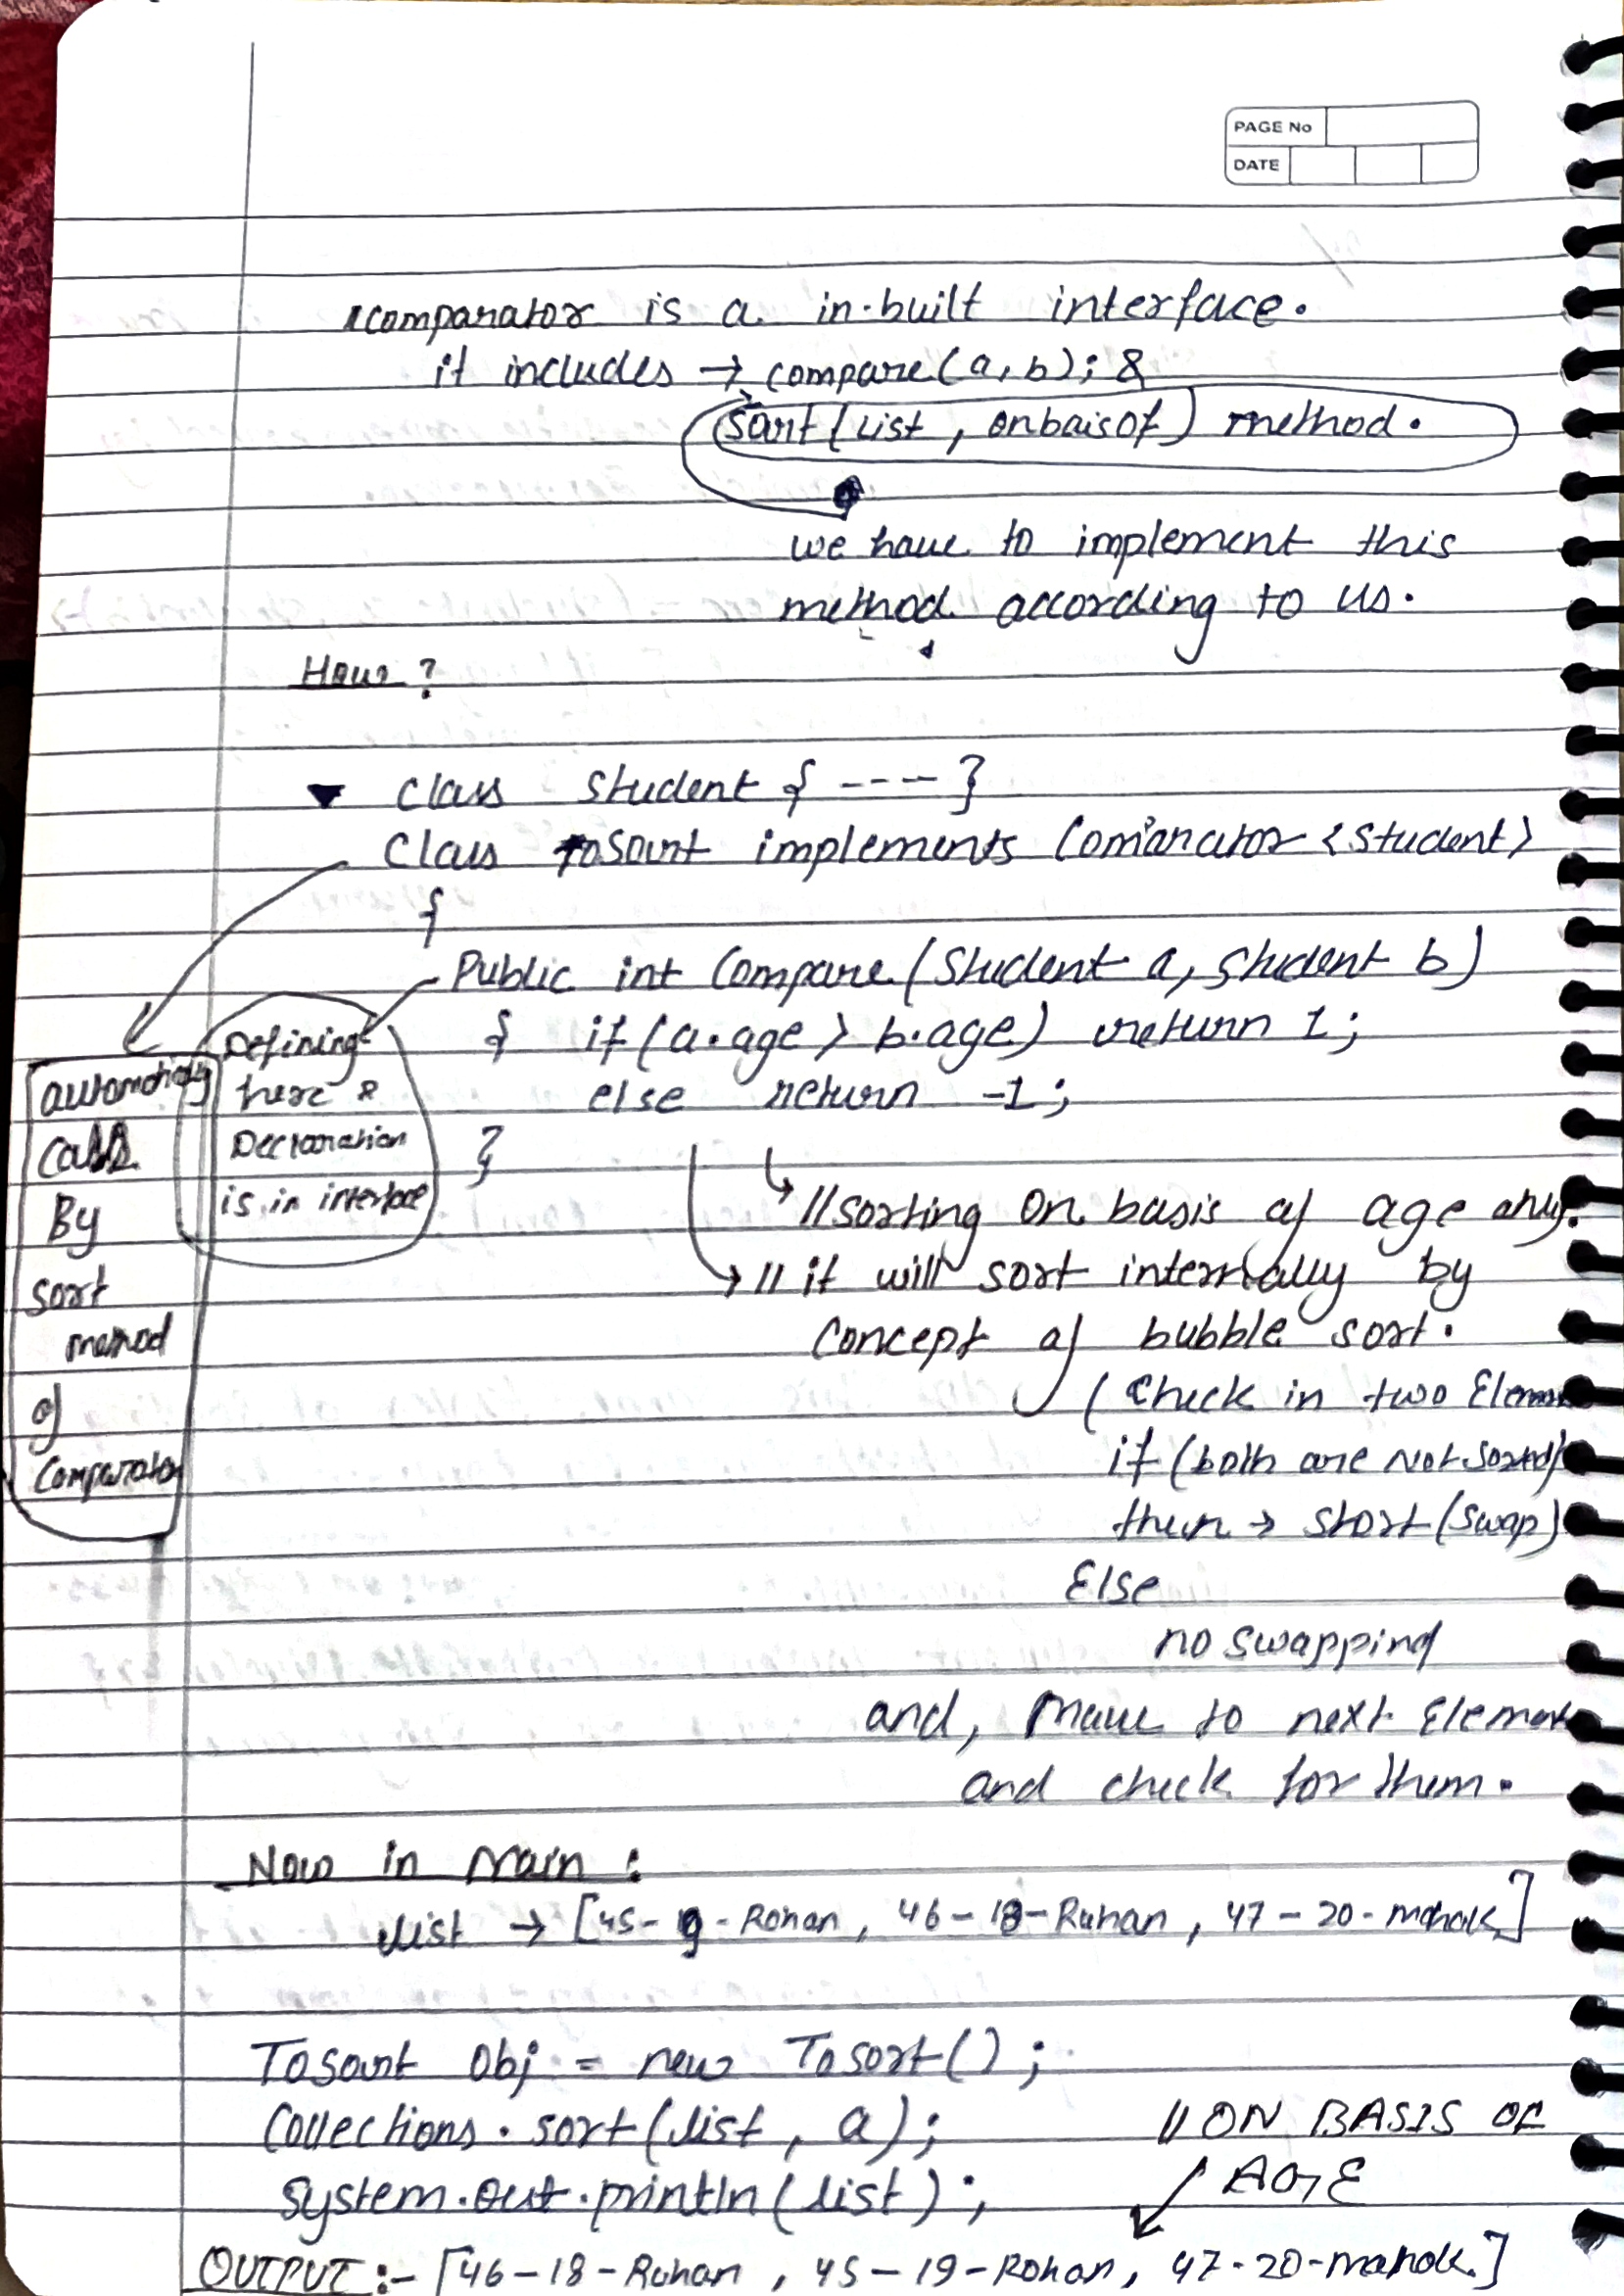 PAGE No
DATE
comparator is a in-built interface.
it includes → compare(a, b); &
sort(list, onbaisof) method.
we have to implement this
method according to us.
How?
class student { ---- }
Class toSort implements Comparator <student>
{
Public int Compare(Student a, student b)
{ if (a.age > b.age) return 1;
else return -1;
}
Defining
here &
Declaration
is in interface
automatically
calls
By
sort
method
of
Comparator
//sorting on basis of age only.
// it will sort internally by
concept of bubble sort.
(Check in two Elemen
if (both are Not Sorted)
then → short (swap)
Else
no swapping
and, Move to next Element
and check for them.
Now in Main :
list → [45-19-Rohan, 46-18-Ruhan, 47-20-mahak]
ToSort Obj = new ToSort();
Collections.sort(list, a);
// ON BASIS OF
AGE
System.out.println(list);
OUTPUT :- [46-18-Ruhan, 45-19-Rohan, 47-20-mahak.]